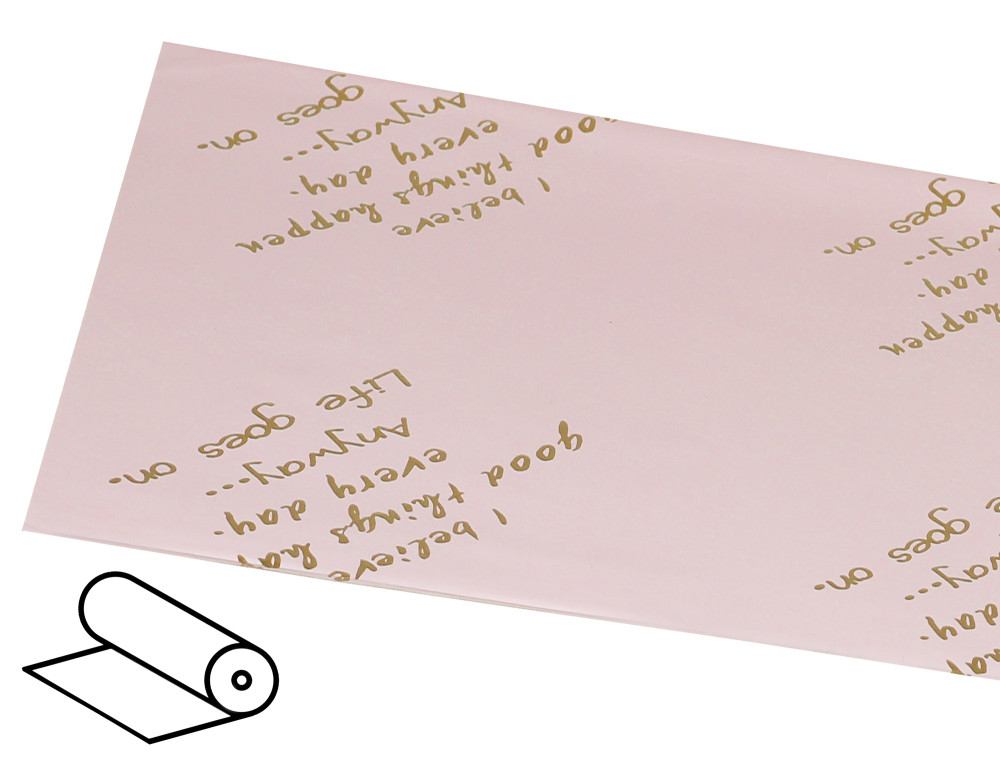 I believe
good things happen
every day.
Anyway...
goes on.
happen
day.
way...
goes on.
I believe
good things hap
every day.
Anyway...
Life goes on.
day.
way...
goes on.